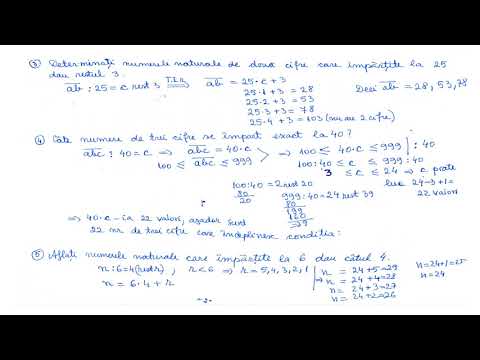 ③ Determinați numerele naturale de două cifre care împărțite la 25
dau restul 3.
ab : 25 = c rest 3 T.Î.R. ⟹ ab = 25·c + 3
25·1 + 3 = 28
25·2 + 3 = 53
25·3 + 3 = 78
25·4 + 3 = 103 (nu are 2 cifre)
Deci ab = 28, 53, 78
④ Câte numere de trei cifre se împart exact la 40?
abc : 40 = c ⇒ abc = 40·c
100 ≤ abc ≤ 999
⇒ 100 ≤ 40·c ≤ 999 | : 40
100:40 ≤ c ≤ 999:40
3 ≤ c ≤ 24 ⇒ c poate
lua 24-3+1=
22 valori
100:40 = 2 rest 20
80
20
999:40 = 24 rest 39
80
199
160
=39
⇒ 40·c -ia 22 valori, așadar sunt
22 nr. de trei cifre care îndeplinesc condiția.
⑤ Aflați numerele naturale care împărțite la 6 dau câtul 4.
n : 6 = 4 (rest r), r < 6 ⇒ r = 5, 4, 3, 2, 1
n = 6·4 + r
⇒ n = 24+5=29
n = 24+4=28
n = 24+3=27
n = 24+2=26
n=24+1=25
n=24
-2-